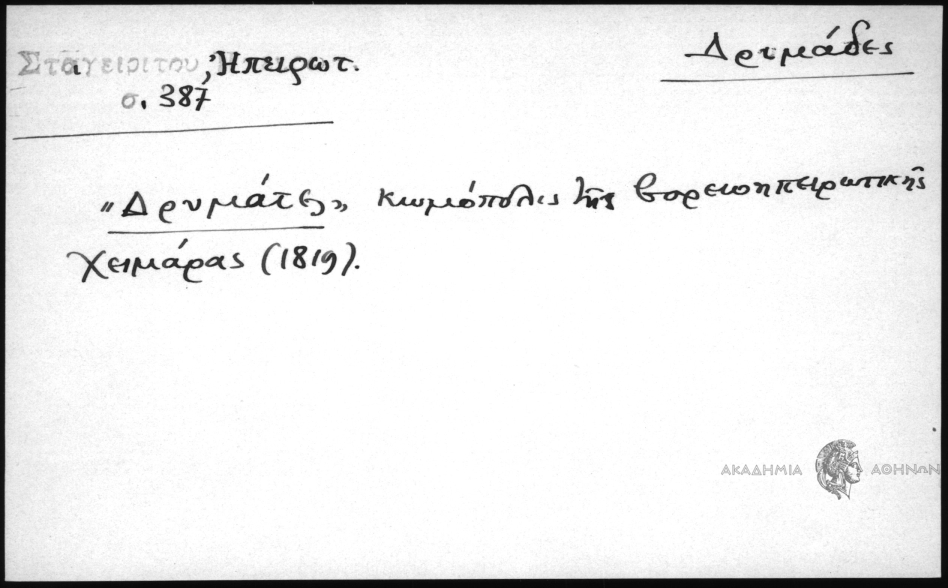 Δρυμάδες
Σταγειρίτου, Ἠπειρωτ.
σ. 387
"Δρυμάτες" κωμόπολις τῆς βορειοηπειρωτικῆς
Χειμάρας (1819).
ΑΚΑΔΗΜΙΑ ΑΘΗΝΩΝ